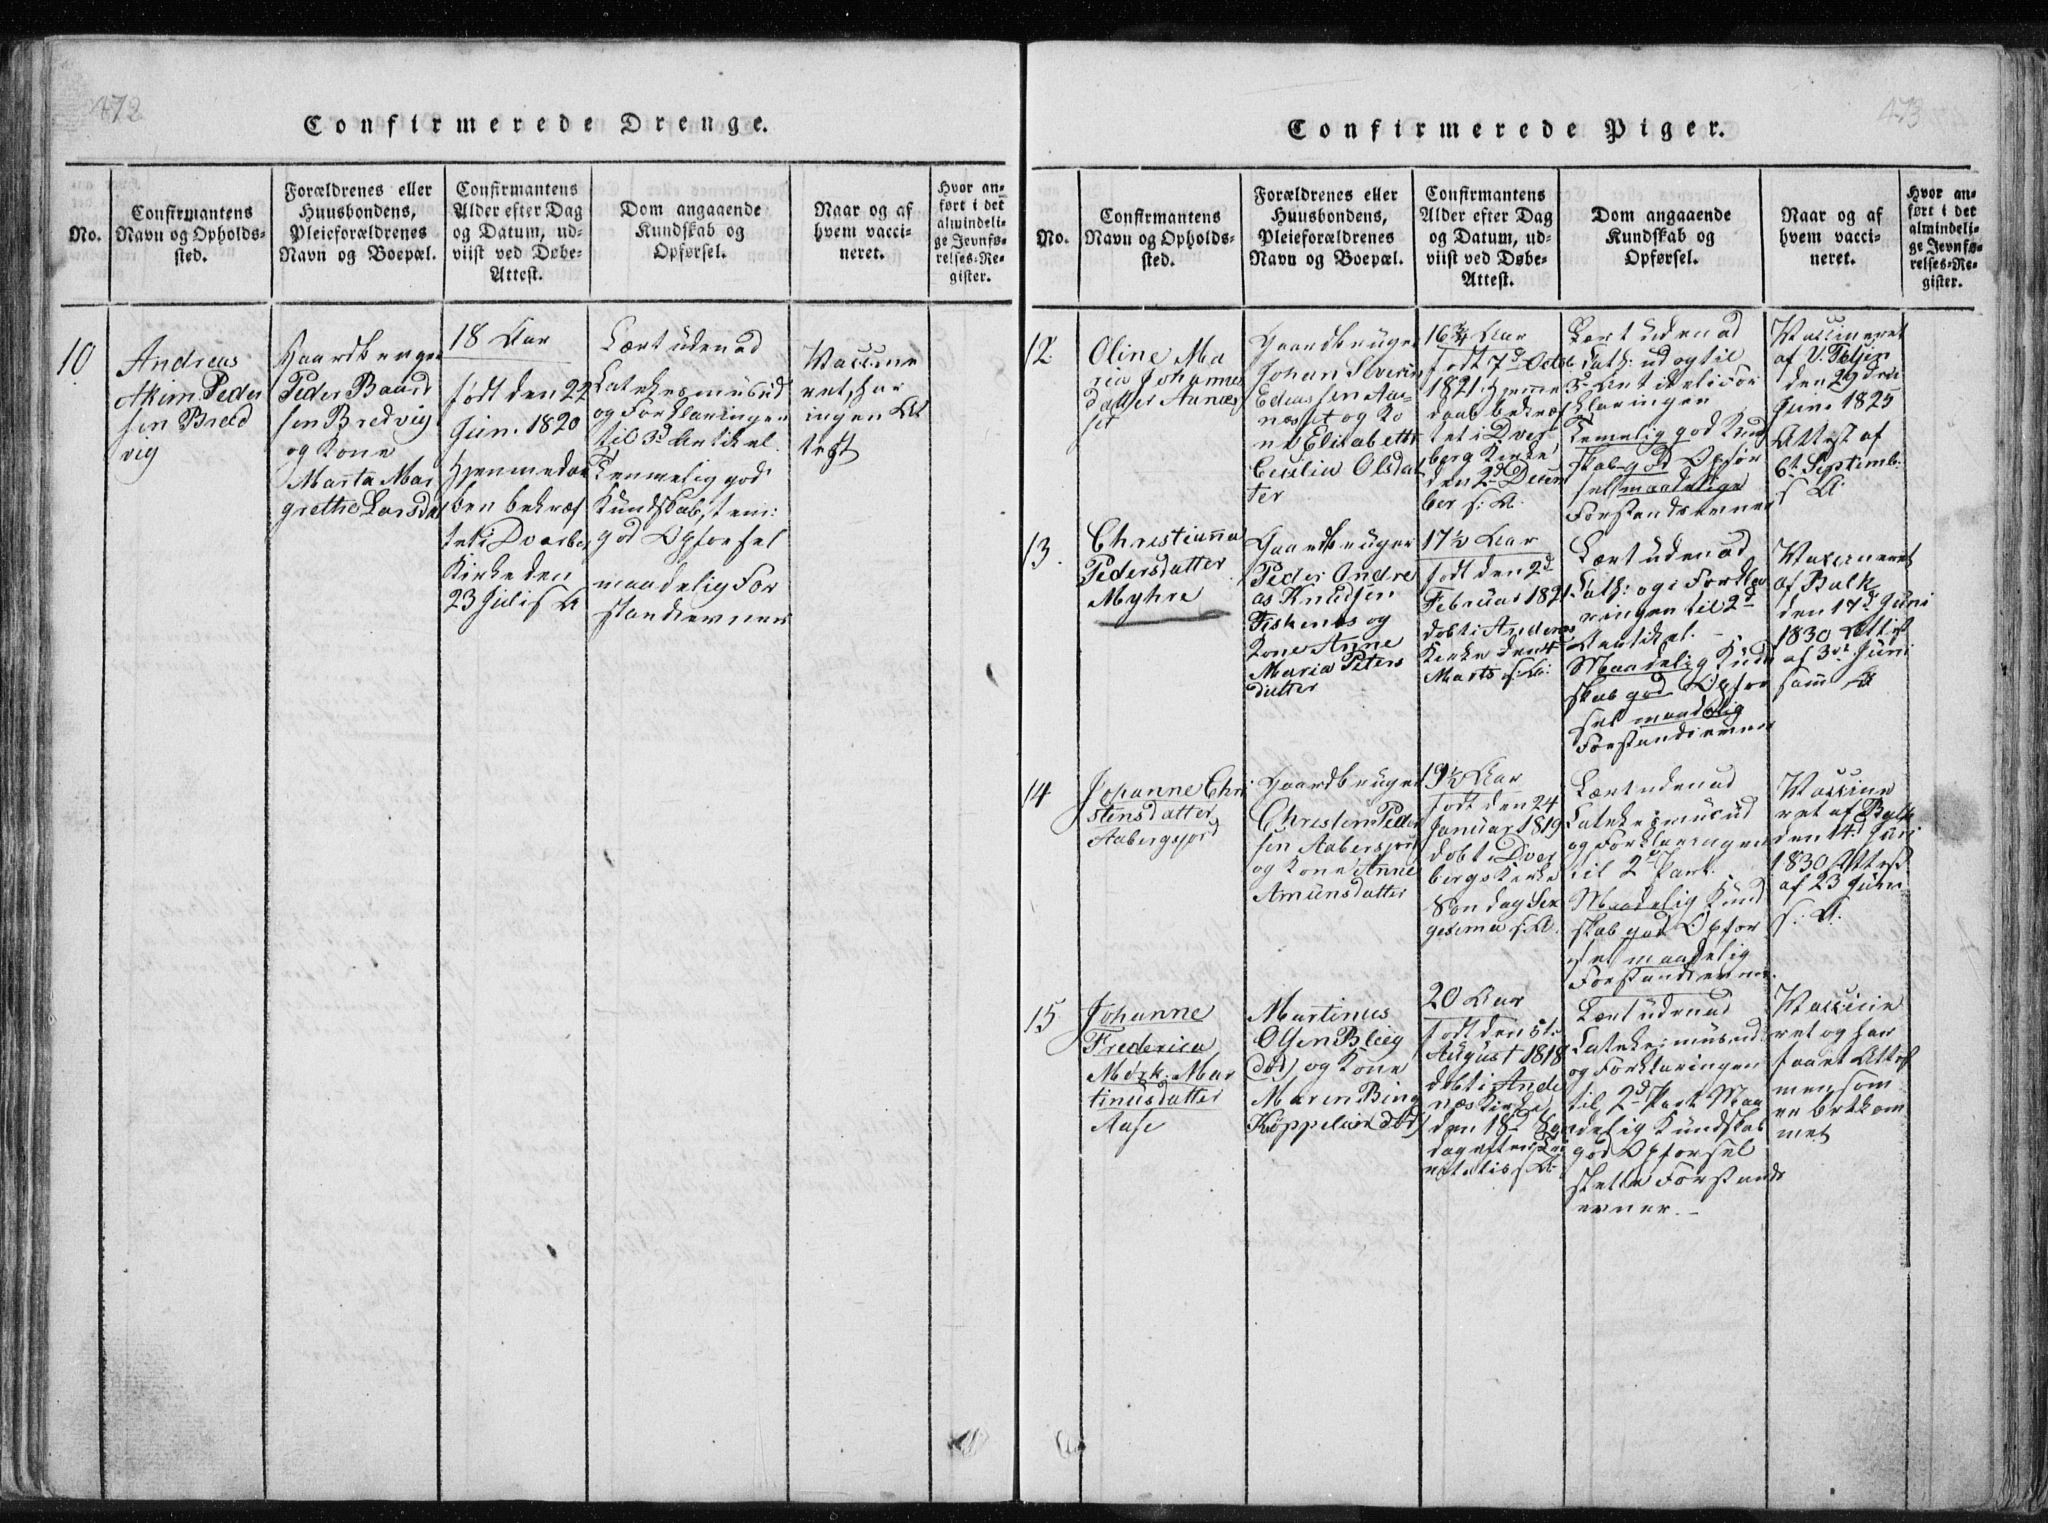 472
Confirmerede Drenge.
No.
Confirmantens
Navn og Opholds-
sted.
Forældrenes eller
Huusbondens,
Pleieforældrenes
Navn og Boepæl.
Confirmantens
Alder efter Dag
og Datum, ud-
viist ved Døbe-
Attest.
Dom angaaende
Kundskab og
Opførsel.
Naar og af
hvem vacci-
neret.
Hvor an-
ført i det
almindeli-
ge Jevnfø-
relses-Re-
gister.
10
Andreas
Akim Peder
sen Bred
vig
Gaardbruger
Peder Baard
sen Bredvig
og Kone
Marta Mar
grethe Larsda
18 Aar
født den 22
Juni 1820
hjemmedøb
ben bekræf
tet i Dverberg
Kirke den
23 Juli s A
Lært uden ad
Katekesmus ud
og Forklaringen
til 3d Artikel.
Temmelig god
Kundskab, tem:
god Opførsel
maadelig For
standsevner
Vaccine
ret, har
ingen At
test
473
Confirmerede Piger.
No.
Confirmantens
Navn og Opholds-
sted.
Forældrenes eller
Huusbondens,
Pleieforældrenes
Navn og Boepæl.
Confirmantens
Alder efter Dag
og Datum, ud-
viist ved Døbe-
Attest.
Dom angaaende
Kundskab og
Opførsel.
Naar og af
hvem vacci-
neret.
Hvor an-
ført i det
almindeli-
ge Jevnfø-
relses-Re-
gister.
12
Oline Ma
ria Johannes
datter Aanæs
set
Gaardbruger
Johan Severin
Edeassen Aa-
næsset og Ko
ne Elisabeth
Cecilia Olsdat
ter
16 3/4 Aar
født 7d Octob
1821. hjemme
døbt bekræf
tet i Dver
berg Kirke
den 2d Decem
ber s: A.
Lært uden ad
Kath: ud og til
3d Artikel i For
klaringen
Temelig god Kund
skab god Opfør
sel maadelige
Forstandsevner
Vaccineret
af
den 29de
Juni 1825
Attest af
6t Septemb.
s A:
13.
Christianna
Pedersdatter
Myhre
Gaardbruger
Peder Andre
as Knudsen
Fiskenes og
Kone Anne
Maria Peters
datter
17½ Aar
født den 2d
Februar 1821.
døbt i Andenes
Kirke den 4
Marts s: A:
Lært uden ad
Kath: og i Forkla
ringen til 2d
Artikel. -
Maadelig Kund
skab god Opfør
sel maadelig
Forstandsevner
Vaxineret
af Balk
den 17d Juni
1830 Attest
af 3die Juni
samm A
14
Johanne Chri
stensdatter
Aabergsjord
Gaardbruger
Christen Peder
sen Aabersjord
og Kone Anne
Amunsdatter
19½ Aar
født den 24
Januar 1819
døbt i Dver
bergs Kirke
Søndag Sex
gesima s: A.
Lært uden ad
Katekismus ud
og Forklaringen
til 2d Part.
Maadelig Kund
skab god Opfør
sel maadelig
Forstandsevner.
Vaxine
ret af Balk
den 14d Juni
1830 Attest
af 23 Juni
s: A:
15
Johanne
Frederica
Mørk Mar
tinusdatter
Aase
Martinus
Olsen Bleeg
død) og Kone
Maren Bing
Køppelier død)
20 Aar
født den 5t.
August 1818
døbt i Ande
næs Kirke
den 18d Søn
dag efter Tri
nitatis s: A:
Lært uden ad
Katekismus ud
og Forklaringen
til 2d Part. Maa
delig Kundskab
god Opførsel
slette Forstands
evner. -
Vaccine
ret og har
faaet Attest
men som
er bortkom
met